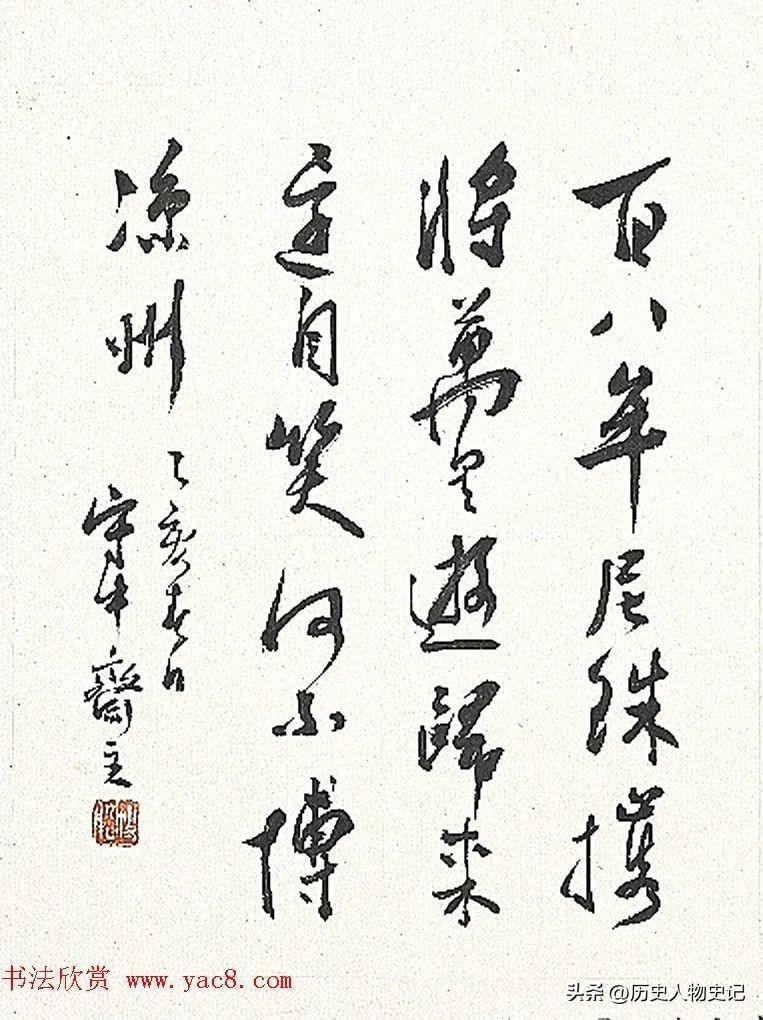 百八年尼珠携
將萬里遊歸来
定自笑何不博
涼州
乙亥春日
守牛齋主
书法欣赏 www.yac8.com
头条 @历史人物史记